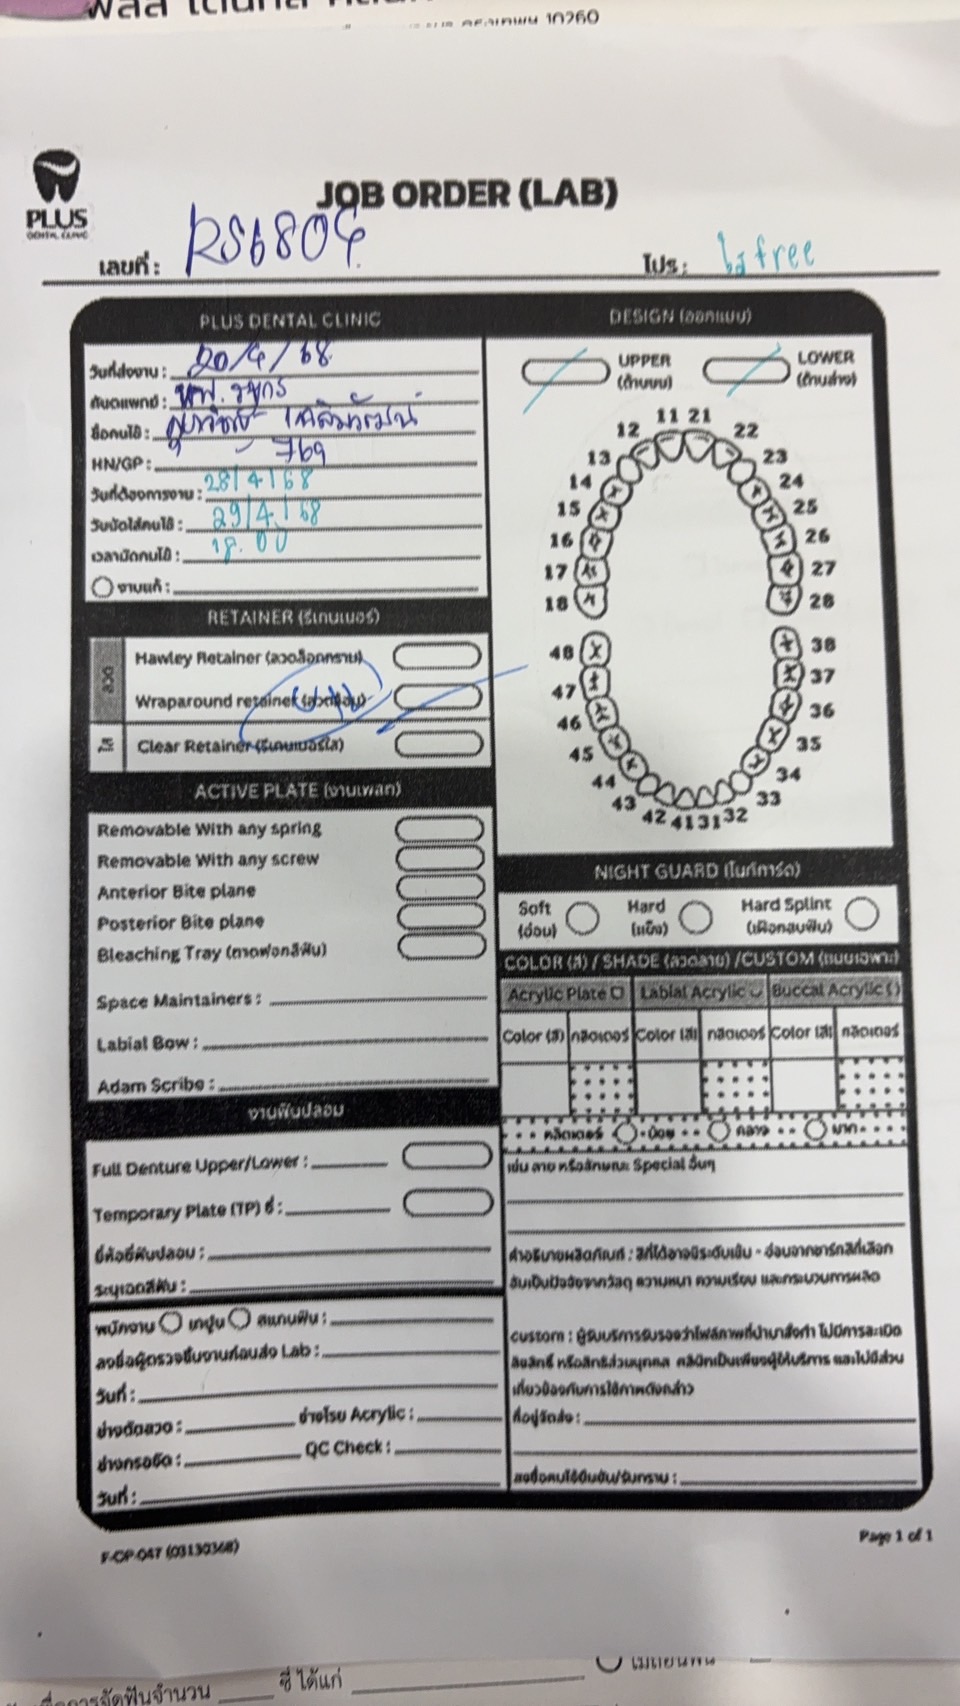 พลัส เดนทัล
10260
PLUS
DENTAL CLINIC
JOB ORDER (LAB)
เลขที่ : RS6804
โปร : ใส free
PLUS DENTAL CLINIC
วันที่ส่งงาน : 20/4/68
ทันตแพทย์ : ทพ.
ชื่อคนไข้ :
HN/GP : 769
วันที่ต้องการงาน : 28/4/68
วันนัดใส่คนไข้ : 29/4/68
เวลานัดคนไข้ : 18.00
งานแก้ :
RETAINER (รีเทนเนอร์)
ลวด
Hawley Retainer (ลวดล็อกกราม)
Wraparound retainer
ใส
Clear Retainer (รีเทนเนอร์ใส)
ACTIVE PLATE (งานเพลท)
Removable With any spring
Removable With any screw
Anterior Bite plane
Posterior Bite plane
Bleaching Tray (ถาดฟอกสีฟัน)
Space Maintainers :
Labial Bow :
Adam Scribe :
งานฟันปลอม
Full Denture Upper/Lower :
Temporary Plate (TP) ซี่ :
ยี่ห้อซี่ฟันปลอม :
ระบุเฉดสีฟัน :
พนักงาน เทปูน สแกนฟัน :
ลงชื่อผู้ตรวจชิ้นงานก่อนส่ง Lab :
วันที่ :
ช่างดัดลวด : ช่างโรย Acrylic :
ช่างกรอขัด : QC Check :
วันที่ :
DESIGN (ออกแบบ)
UPPER
(ด้านบน)
LOWER
(ด้านล่าง)
11 21
12 22
13 23
14 24
15 25
16 26
17 27
18 28
48 38
47 37
46 36
45 35
44 34
43 33
42 41 31 32
NIGHT GUARD (ไนท์การ์ด)
Soft
(อ่อน)
Hard
(แข็ง)
Hard Splint
(เฝือกสบฟัน)
COLOR (สี) / SHADE (ลวดลาย) /CUSTOM (แบบเฉพาะ)
Acrylic Plate Labial Acrylic Buccal Acrylic ( )
Color (สี) กลิตเตอร์ Color (สี) กลิตเตอร์ Color (สี) กลิตเตอร์
กลิตเตอร์ น้อย กลาง มาก
เช่น ลาย หรือลักษณะ Special อื่นๆ
คำอธิบายผลิตภัณฑ์ : สีที่ได้อาจมีระดับเข้ม - อ่อนจากชาร์ทสีที่เลือก
อันเป็นปัจจัยจากวัสดุ ความหนา ความเรียบ และกระบวนการผลิต
custom : ผู้รับบริการรับรองว่าไฟล์ภาพที่นำมาสั่งทำ ไม่มีการละเมิด
ลิขสิทธิ์ หรือสิทธิส่วนบุคคล คลินิกเป็นเพียงผู้ให้บริการ และไม่มีส่วน
เกี่ยวข้องกับการใช้ภาพดังกล่าว
ที่อยู่จัดส่ง :
ลงชื่อคนไข้ยืนยัน/รับทราบ :
F-CP-047 (03130368)
Page 1 of 1
การจัดฟันจำนวน ซี่ ได้แก่